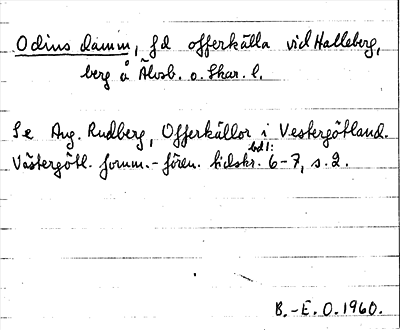 Odins damm, f d offerkälla vid Halleberg,
berg å Älvsb. o. Skar. l.
Se Aug. Rudberg, Offerkällor i Vestergötland.
Västergötl. fornm.-fören. tidskr. bd 1: 6-7, s. 2.
B.-E. O. 1960.